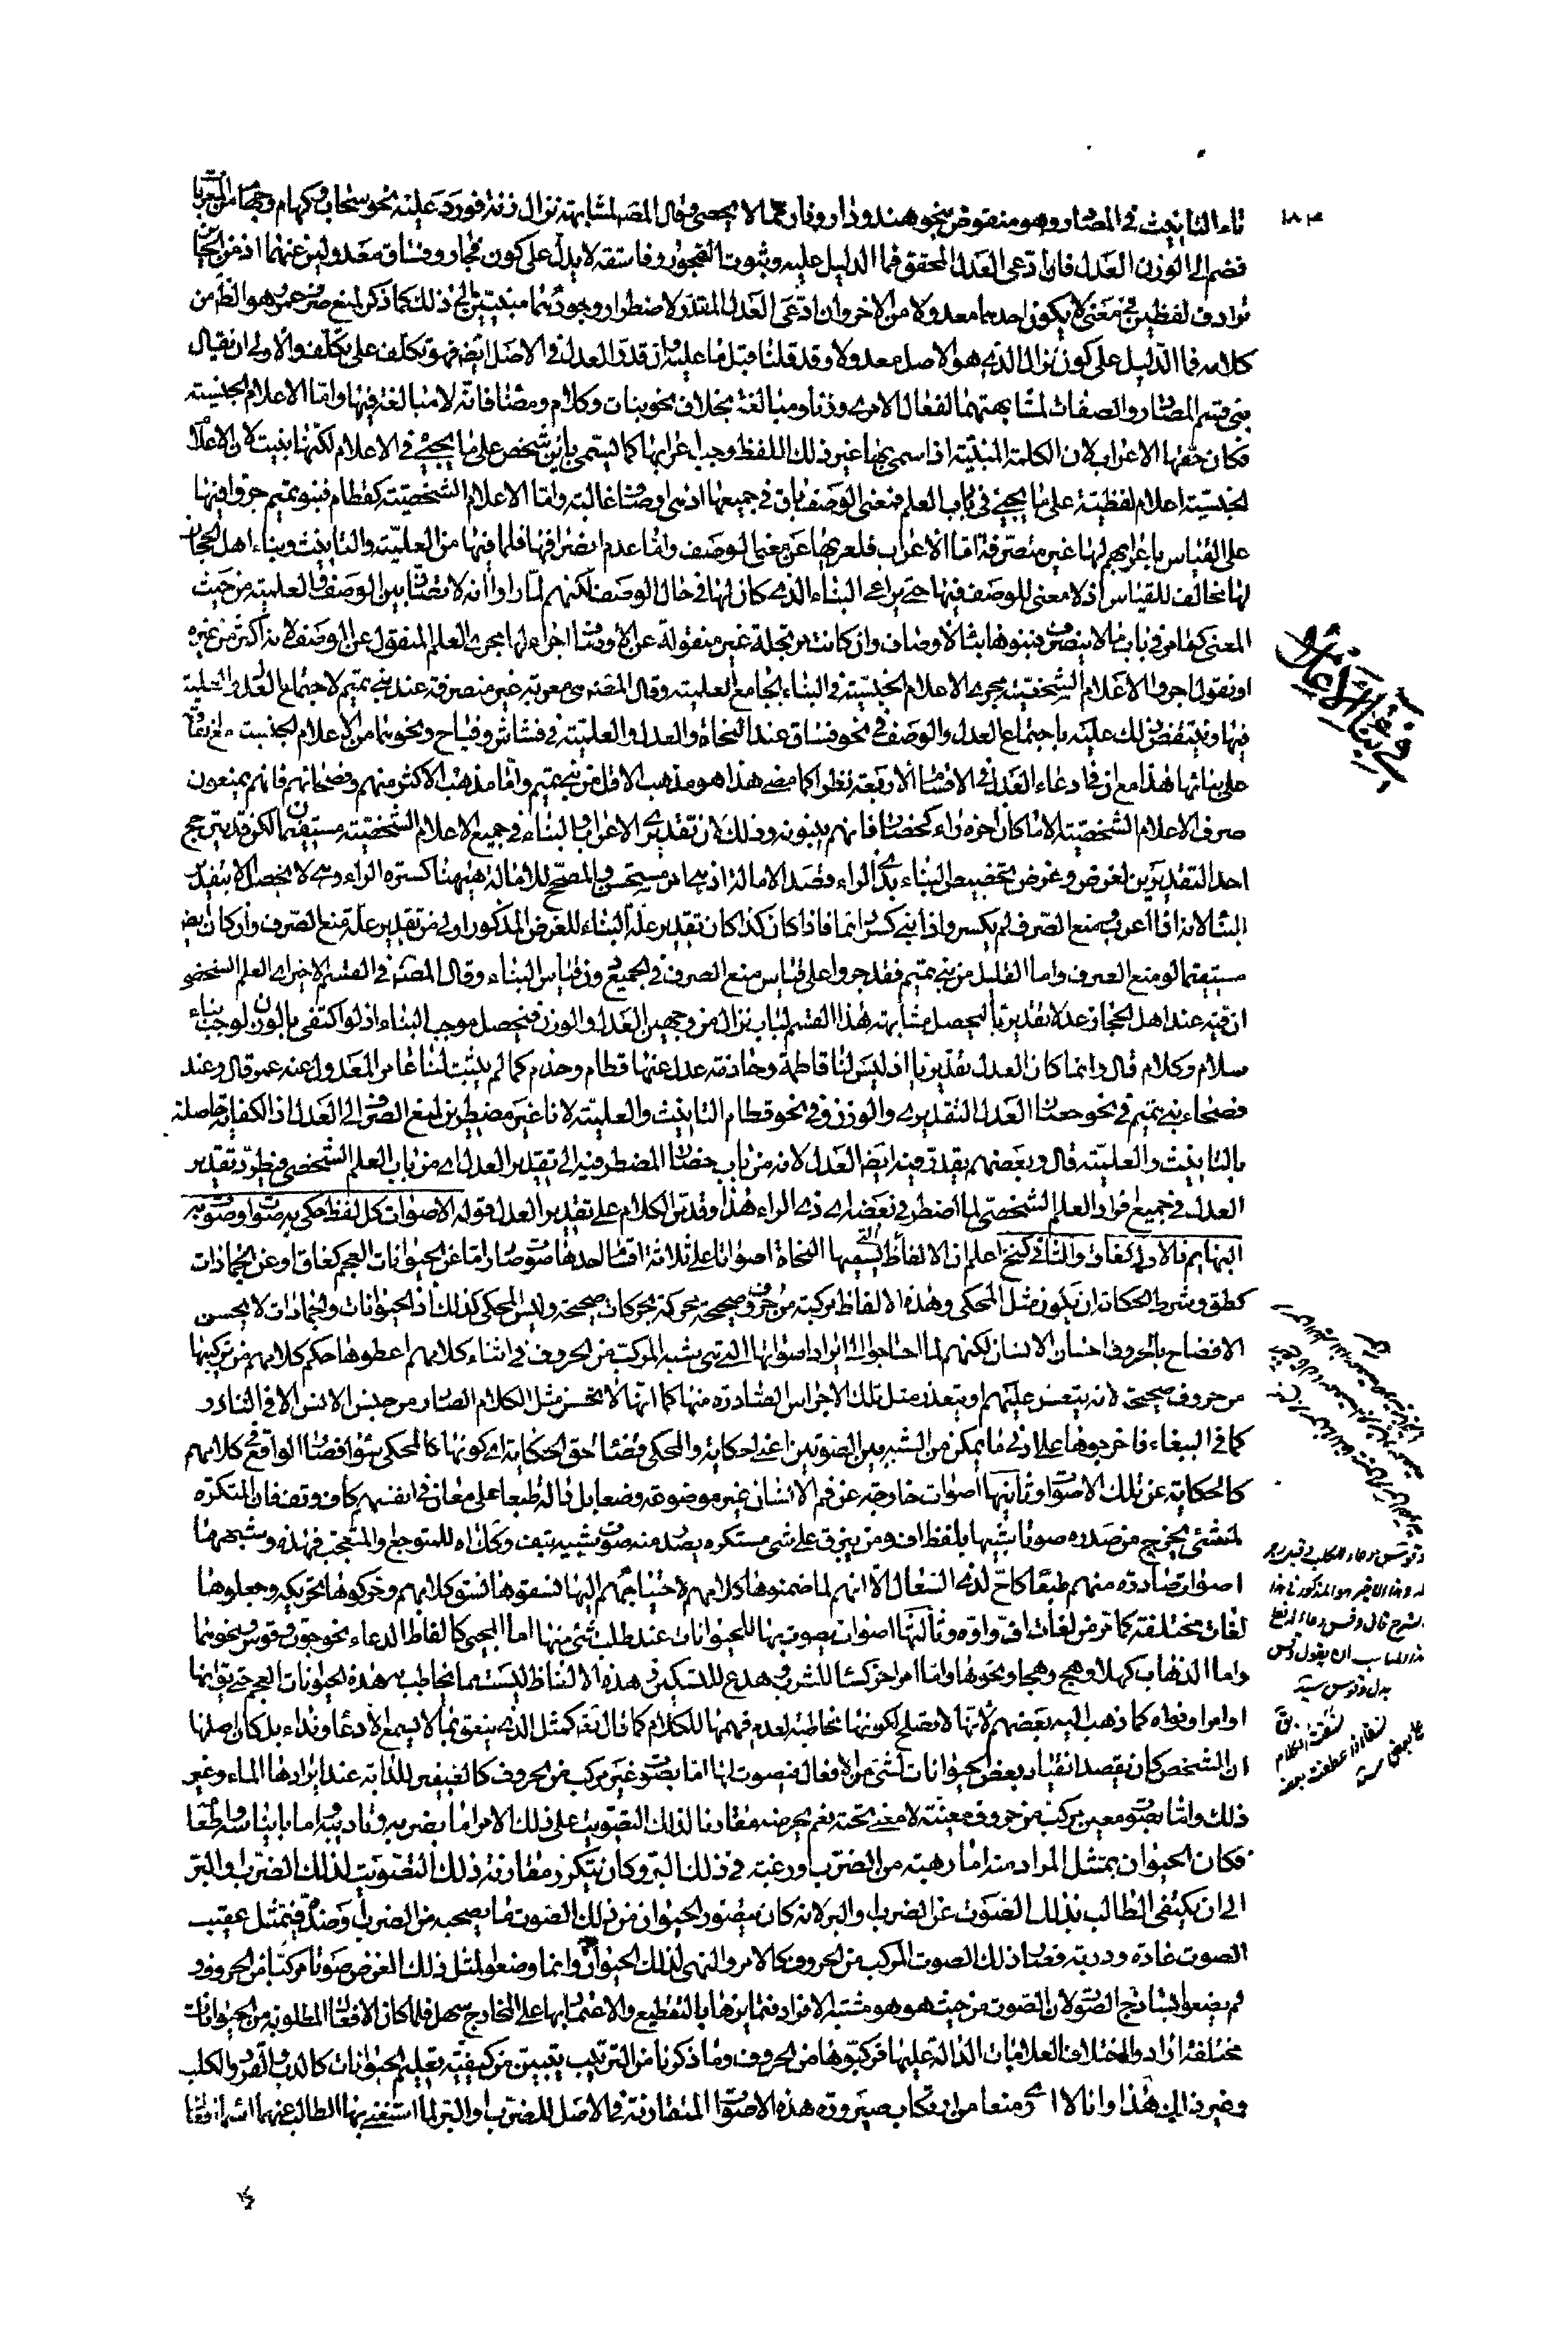 تاء التأنيث فى المصادر وهو منقوض بنحو هند ودار ونار مما لا يحصى وقال المصنف لمشابهته نزال زنة فورد عليه نحو سحاب وكهام وجهام من المعربات
فضم الى الوزن العدل فان ادعى العدل المحقق فما الدليل عليه وثبوت الفجور وفاسقة لا يدل على كون فجار وفساق معدولين عنهما اذ من الجائز
ترادف لفظين فى معنى لا يكون احدهما معدولا من الاخر وان ادعى العدل المقدر لاضطرار وجودهما مبنيتين الى ذلك كما ذكر لمنع صرف عمر وهو الظاهر من
كلامه فما الدليل على كون نزال الذى هو الاصل معدولا وقد قلنا قبل ما عليه وان قدر العدل فى الاصل ايضا فهو تكلف على تكلف والاولى ان يقال
بنى قسم المصادر والصفات لمشابهتهما لفعال الامرى وزنا ومبالغة بخلاف نحو بنات وكلام ومضاء فانه لا مبالغة فيها واما الاعلام الجنسية
فكان حقها الاعراب لان الكلمة المبنية اذا سمى بها غير ذلك اللفظ وجب اعرابها كما يسمى باين شخص على ما يجىء فى الاعلام لكنها بنيت لان الاعلام
الجنسية اعلام لفظية على ما يجىء فى باب العلم فمعنى الوصف باق فى جميعها اذ هى اوصاف غالبة واما الاعلام الشخصية كقطام فبنو تميم جروا فيها
على القياس باعرابهم لها غير منصرفة اما الاعراب فلعريها عن معنى الوصف واما عدم انصرافها فلما فيها من العلمية والتأنيث وبناء اهل الحجاز
لها مخالف للقياس اذ لا معنى للوصف فيها حتى يراعى البناء الذى كان لها فى حال الوصف لكنهم لما راوا انه لا تضاد بين الوصف والعلمية من حيث
المعنى كما مر فى باب ما لا ينصرف بنوها بناء الاوصاف وان كانت مرتجلة غير منقولة عن الاوصاف اجراء لها مجرى العلم المنقول عن الوصف لانه اكثر من غيره
او نقول اجروا الاعلام الشخصية مجرى الاعلام الجنسية فى البناء بجامع العلمية وقال المصنف هى معربة غير منصرفة عند بنى تميم لاجتماع العدل والعلمية
فيها وينتقض ذلك عليه باجتماع العدل والوصف فى نحو فساق عند النحاة والعدل والعلمية فى فشاش وفياح ونحوهما من الاعلام الجنسية مع اتفاقهم
على بنائها هذا مع ان فى ادعاء العدل فى الاقسام الاربعة نظرا كما مضى هذا هو مذهب الاقل من بنى تميم واما مذهب الاكثر منهم وفصحائهم فانهم يمنعون
صرف الاعلام الشخصية الا ما كان اخره راء كحضار فانهم يبنونه وذلك لان تقديرى الاعراب والبناء فى جميع الاعلام الشخصية مستقيمان لكن قد يترجح
احد التقديرين لغرض وغرض تخصيص البناء بذى الراء قصد الامالة اذ هى امر مستحسن والمصحح للامالة ههنا كسرة الراء وهى لا تحصل الا بتقدير
البناء لانه اذا اعرب بمنع الصرف لم يكسر واذا بنى كسر دائما فاذا كان كذا كان تقدير علة البناء للغرض المذكور اولى من تقدير علة منع الصرف وان كان ايضا
مستقيما لو منع الصرف واما القليل من بنى تميم فقد جروا على قياس منع الصرف فى الجميع دون قياس البناء وقال المصنف فى القسم الاخير اى العلم الشخصى
ان فيه عند اهل الحجاز عدلا تقديريا ليحصل مشابهة هذا القسم لباب نزال من وجهين العدل والوزن فيحصل موجب البناء اذ لو اكتفى بالوزن لوجب بناء
سلام وكلام قال وانما كان العدل تقديريا اذ ليس لنا قاطمة وحاذمة عدل عنها قطام وحذام كما لم يثبت لنا عامر المعدول عنه عمر قال وعند
فصحاء بنى تميم فى نحو حضار العدل التقديرى والوزن وفى نحو قطام التأنيث والعلمية لانا غير مضطرين لمنع الصرف الى العدل اذ الكفاية حاصلة
بالتأنيث والعلمية قال وبعضهم يقدر فيه ايضا العدل لانه من باب حضار المضطر فيه الى تقدير العدل اى من باب العلم الشخصى فيطرد تقدير
العدل فى جميع افراد العلم الشخصى لما اضطر فى بعض اى ذى الراء هذا وقد مر الكلام على تقدير العدل قوله الاصوات كل لفظ حكى به صوت او صوت به
البهائم فالاول كغاق والثانى كنخ اعلم ان الالفاظ التى يسميها النحاة اصواتا على ثلاثة اقسام احدها صوت صادر اما عن الحيوانات العجم كغاق او عن الجمادات
كطق وشرط الحكاية ان يكون مثل المحكى وهذه الالفاظ مركبة من حروف صحيحة محركة بحركات صحيحة وليس المحكى كذلك اذ الحيوانات والجمادات لا يحسن
الافصاح بالحروف احسان الانسان لكنهم لما احتاجوا الى ايراد اصواتها التى هى شبه المركب من الحروف فى اثناء كلامهم اعطوها حكم كلامهم من تركيبها
من حروف صحيحة لانه يتعسر عليهم او يتعذر مثل تلك الاجراس الصادرة منها كما انها لا تحسن مثل الكلام الصادر من جنس الانس الا فى النادر
كما فى الببغاء فاخرجوها على ادنى ما يمكن من الشبه بين الصوتين اعنى الحكاية والمحكى قضاء لحق الحكاية اى كونها كالمحكى سواء فصار الواقع فى كلامهم
كالحكاية عن تلك الاصوات وثانيها اصوات خارجة عن فم الانسان غير موضوعة وضعا بل دالة طبعا على معان فى انفسهم كاف وتف فان المتكره
لشئ يخرج من صدره صوتا شبيها بلفظ اف ومن يبزق على شئ مستكره يصدر منه صوت شبيه بتف وكذا اه للمتوجع والمتعجب فهذه وشبهها
اصوات صادرة منهم طبعا كاح لذى السعال الا انهم لما ضمنوها كلامهم لاحتياجهم اليها نسقوها نسق كلامهم وحركوها تحريكه وجعلوها
لغات مختلفة كما مر من لغات اف واوه وثالثها اصوات يصوت بها للحيوانات عند طلب شئ منها اما المجىء كالفاظ الدعاء نحو جوت وقوس ونحوهما
واما الذهاب كهلا وهج وهجا ونحوها واما امر اخر كسأ للشرب وهدع للتسكين وهذه الالفاظ ليست مما يخاطب به هذه الحيوانات العجم حتى يق انها
اوامر او نواه كما ذهب اليه بعضهم لانها لا تصلح لكونها مخاطبة لعدم فهمها للكلام كما قال تعالى كمثل الذى ينعق بما لا يسمع الا دعاء ونداء بل كان اصلها
ان الشخص كان يقصد انقياد بعض الحيوانات لشئ من الافعال فيصوت لها اما بصوت غير مركب من الحروف كالصفير للدابة عند ايرادها الماء وغير
ذلك واما بصوت معين مركب من حروف معينة لا معنى تحته ثم يحرضه مقارنا لذلك التصويت على ذلك الامر اما بضربه وتأديبه واما بايناسه واطعامه
فكان الحيوان يمتثل المراد منه اما رهبة من الضرب او رغبة فى ذلك البر وكان يتكرر مقارنة ذلك التصويت لذلك الضرب او البر
الى ان يكتفى الطالب بذلك الصوت عن الضرب او البر لانه كان يتصور الحيوان من ذلك الصوت ما يصحبه من الضرب او ضده فيمتثل عقيب
الصوت عادة ودربة فصار ذلك الصوت المركب من الحروف كالامر والنهى لذلك الحيوان وانما وضعوا لمثل ذلك الغرض صوتا مركبا من الحروف و
لم يقنعوا بساذج الصوت لان الصوت من حيث هو هو مشتبه الافراد وتمايزها بالتقطيع والاعتماد بها على المخارج سهل فلما كان الافعال المطلوبة من الحيوانات
مختلفة ارادوا اختلاف العلامات الدالة عليها فركبوها من الحروف وما ذكرنا من الترتيب يتبين من كيفية تعليم الحيوانات كالدب والقرد والكلب
وغير ذلك هذا وانا لا ارى منعا من ارتكاب صيرورة هذه الاصوات المقارنة فى الاصل للضرب او البر لما استغنى بها الطالب عنهما اسماء افعال